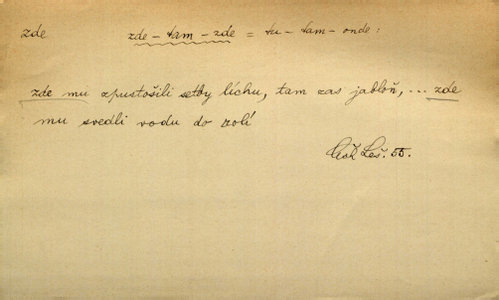 zde zde – tam – zde = tu – tam – onde :
zde mu zpustošili setby líchu, tam zas jabloň, ... zde
mu svedli vodu do rolí
Leš. 55.